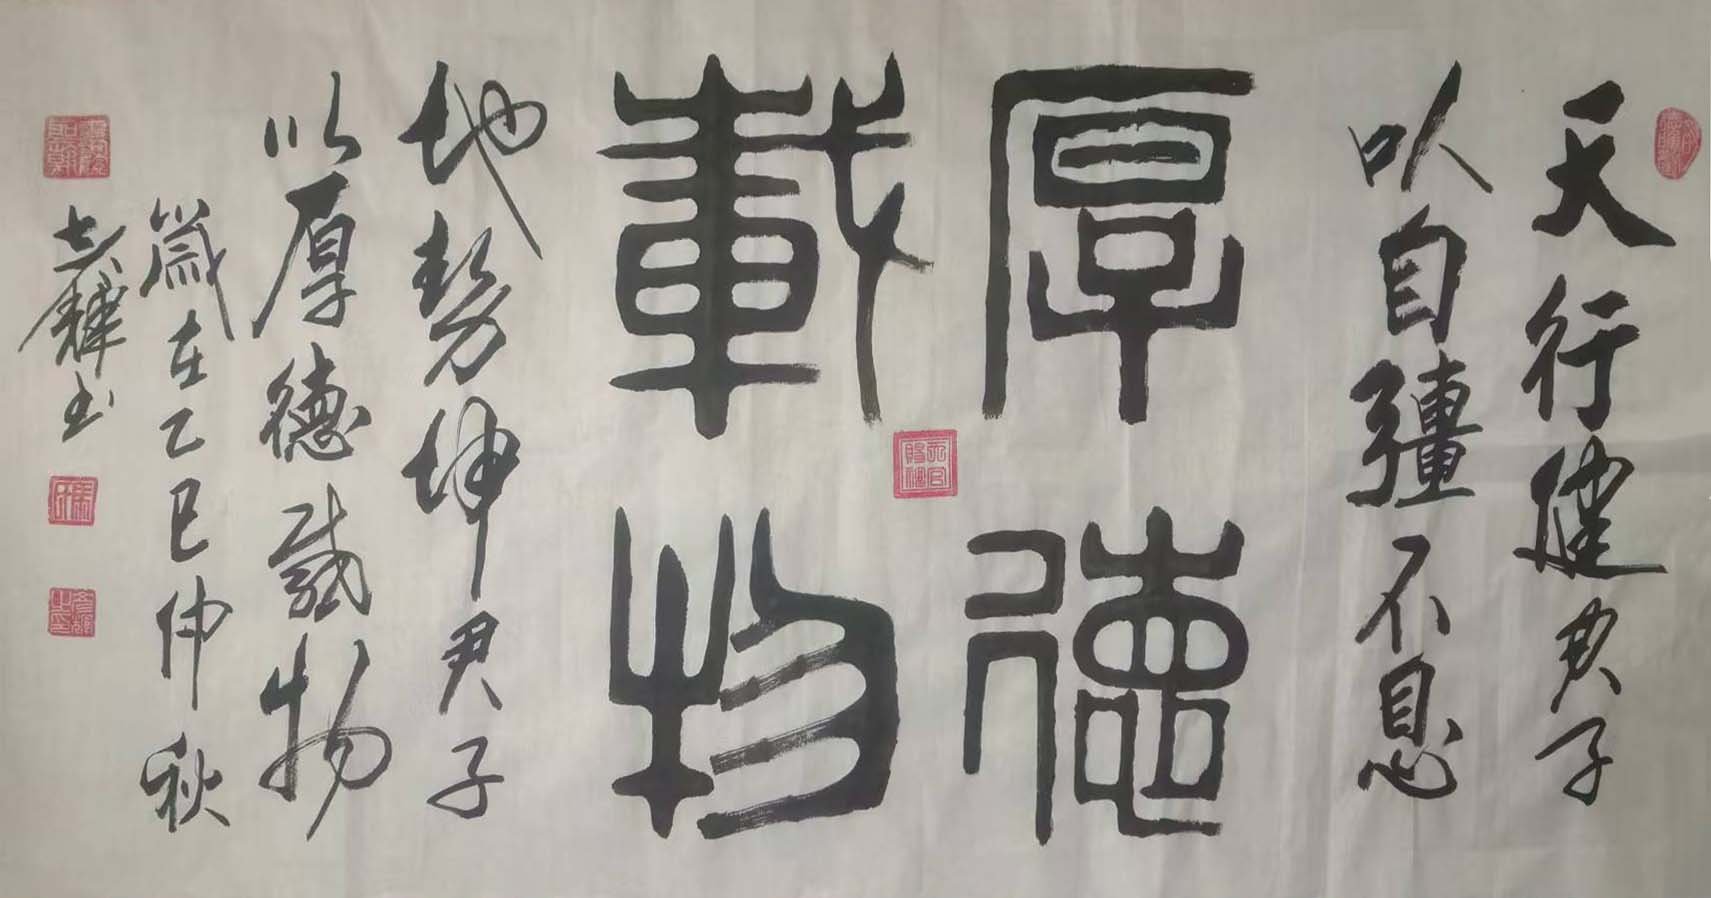 天行健君子
以自彊不息
厚德
載物
地勢坤君子
以厚德載物
歲在乙巳仲秋
志輝書